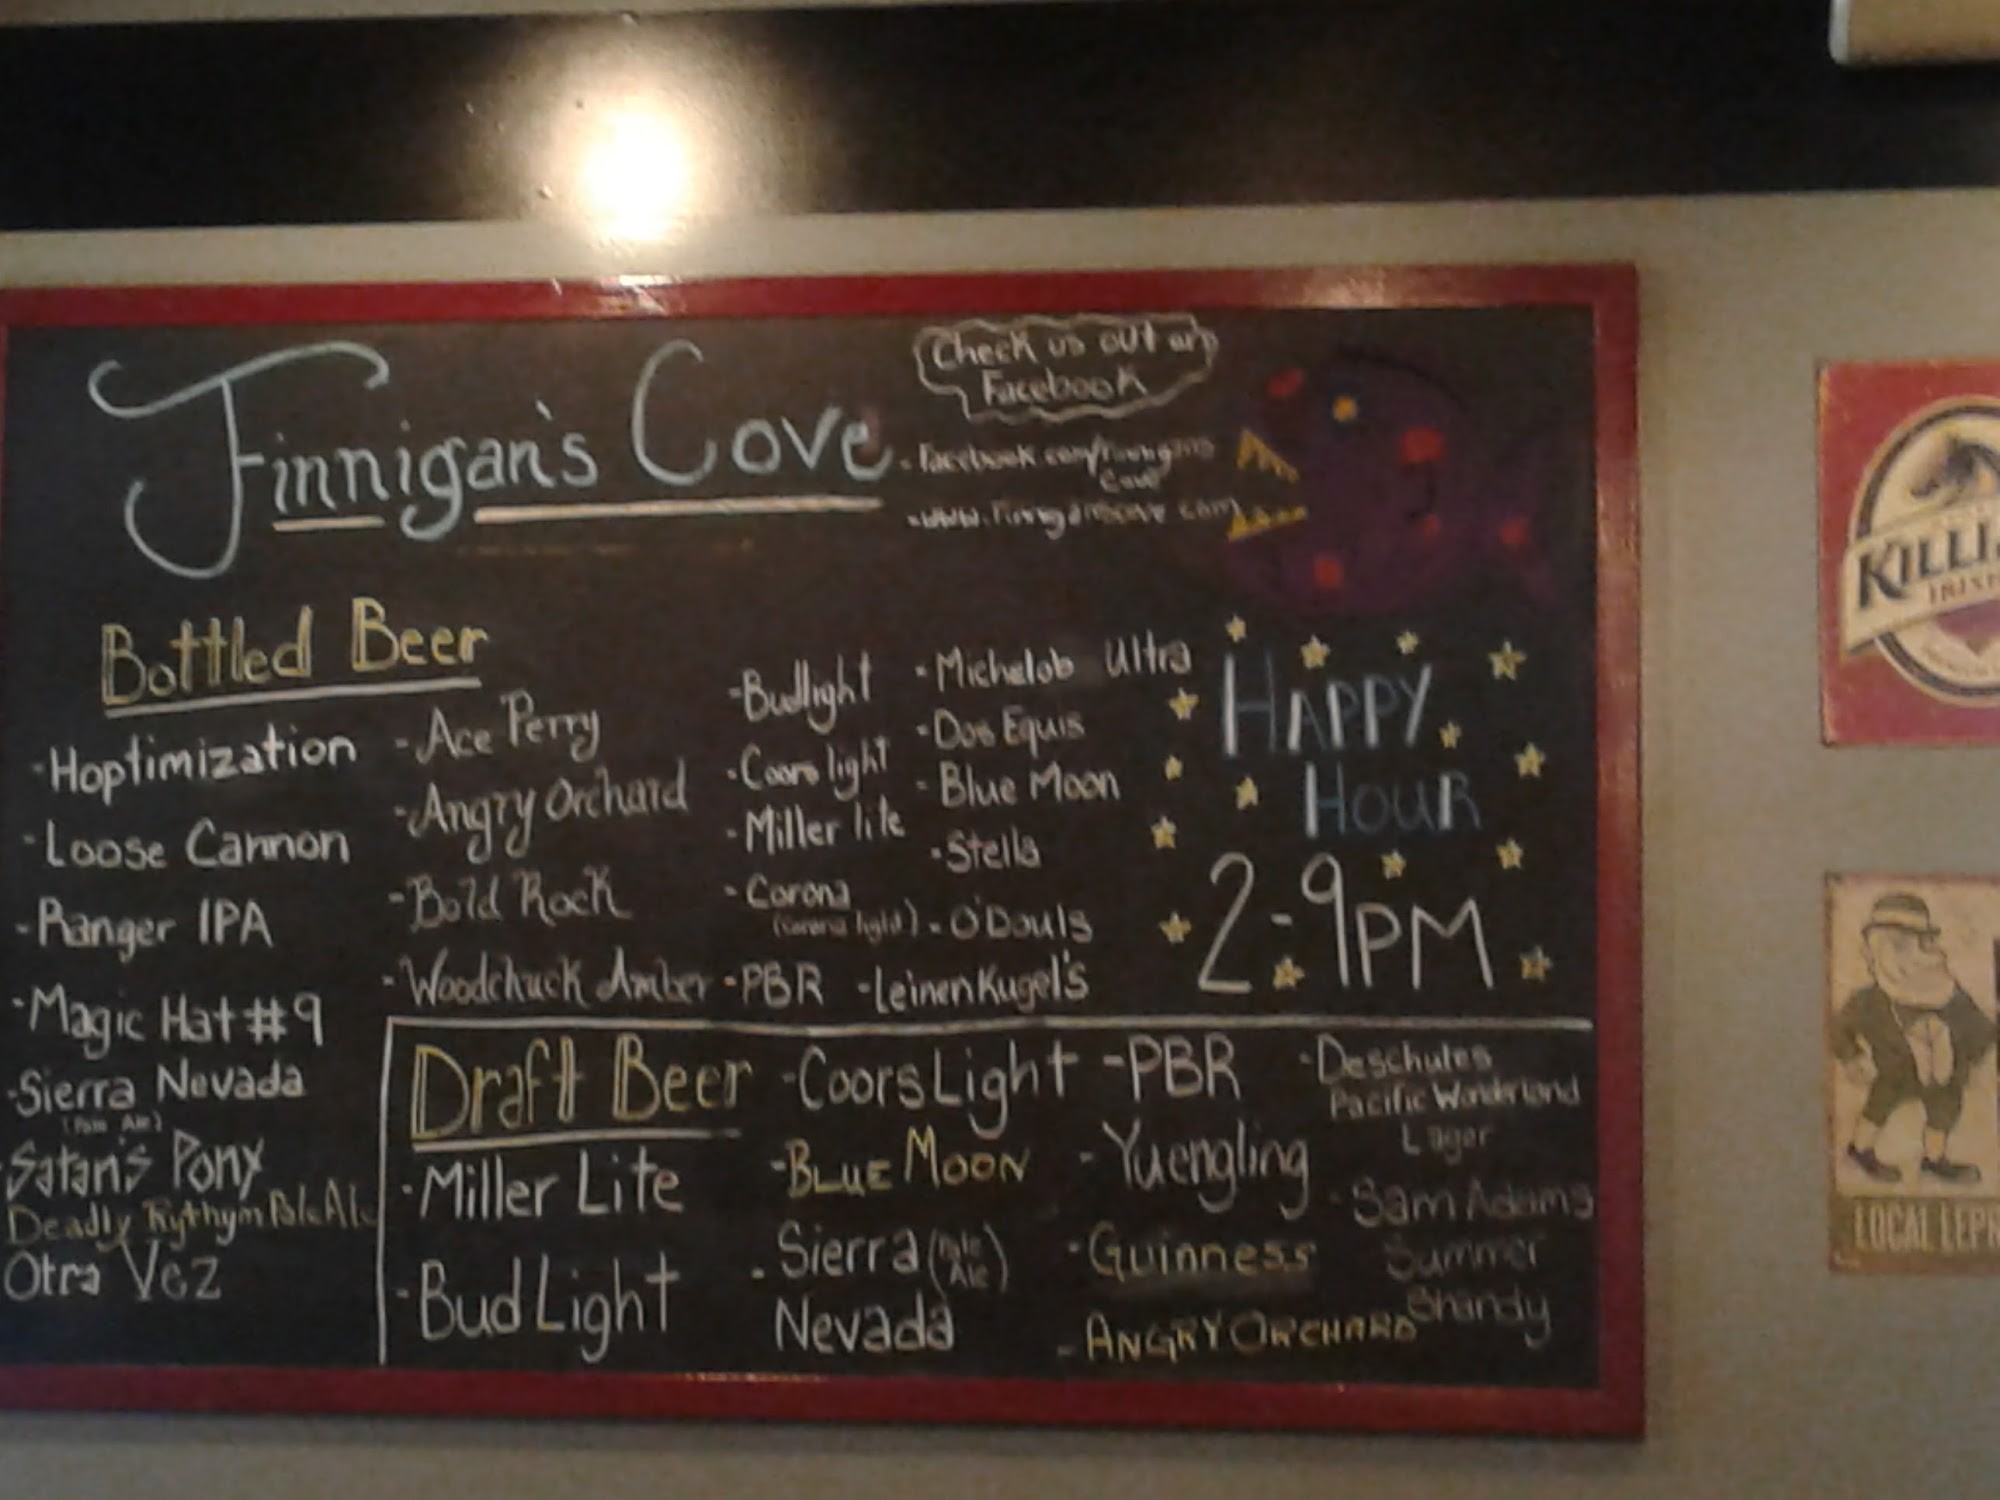 Check us out on
Facebook
Finnigan's Cove
- Facebook.com/Finnigans
Cove
- www.Finniganscove.com
Bottled Beer
- Hoptimization
- Loose Cannon
- Ranger IPA
- Magic Hat #9
- Sierra Nevada
(Pale Ale)
Satan's Pony
Deadly Rythym Pale Ale
Otra Vez
- Ace Perry
- Angry Orchard
- Bold Rock
- Woodchuck Amber
- Budlight
- Coors light
- Miller lite
- Corona
(Corona light)
- PBR
- Michelob Ultra
- Dos Equis
- Blue Moon
- Stella
- O'Douls
- Leinenkugel's
HAPPY
HOUR
2-9PM
Draft Beer
- Miller Lite
- Bud Light
- Coors Light
- BLUE MOON
- Sierra (Pale Ale)
Nevada
- PBR
- Yuengling
- Guinness
- ANGRY ORCHARD
- Deschutes
Pacific Wonderland
Lager
- Sam Adams
Summer
Shandy
KILLI
IRISH
LOCAL LEPR